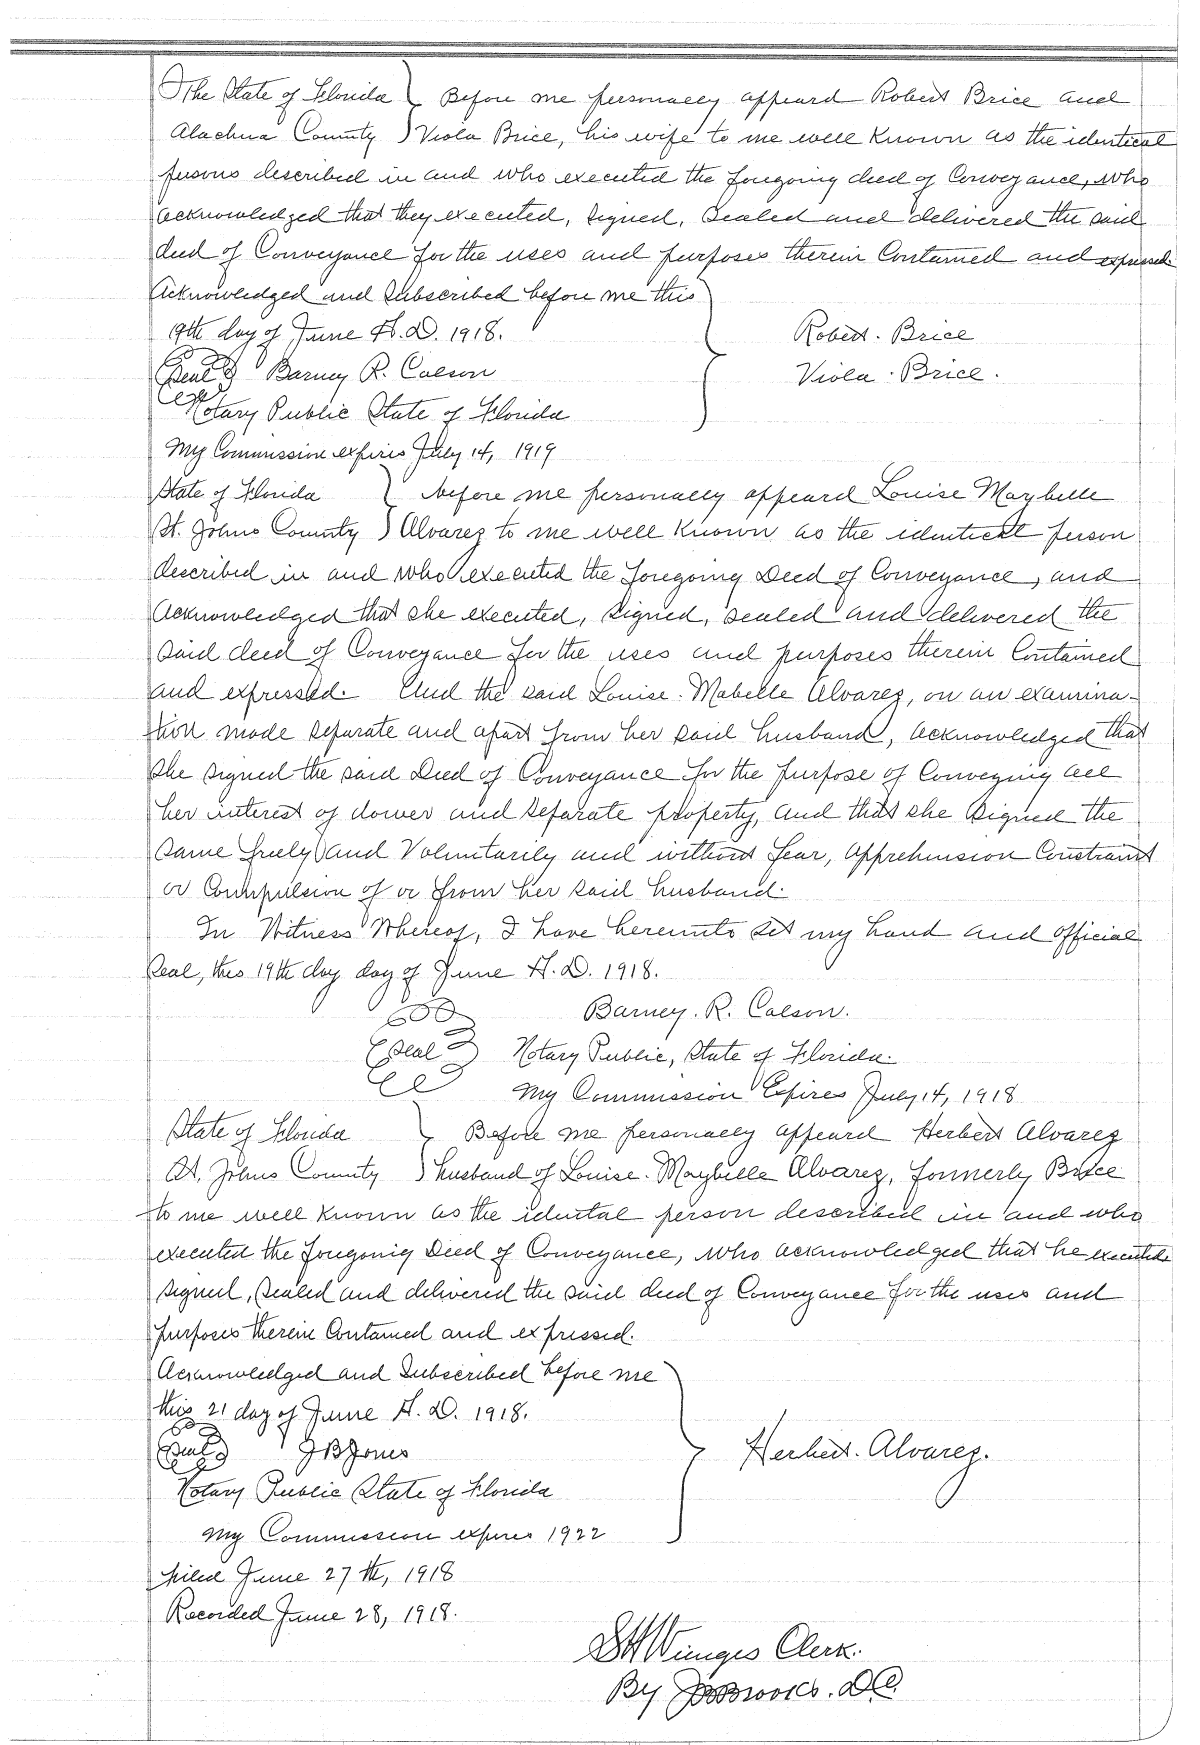 The State of Florida } Before me personally appeard Robert Brice and
Alachua County } Viola Brice, his wife to me well known as the identical
persons described in and who executed the foregoing deed of Conveyance, who
acknowledged that they executed, signed, sealed and delivered the said
deed of Conveyance for the uses and purposes therein Contained and expressed.
Acknowledged and subscribed before me this
19th day of June A.D. 1918.
Robert. Brice
Seal Barney R. Colson
Viola. Brice.
Notary Public State of Florida
My Commission expires July 14, 1919
State of Florida } before me personally appeard Louise Maybelle
St. Johns County } Alvarez to me well known as the identical person
described in and who executed the foregoing Deed of Conveyance, and
acknowledged that she executed, signed, sealed and delivered the
said deed of Conveyance for the uses and purposes therein Contained
and expressed. And the said Louise. Mabelle Alvarez, on an examina-
tion made separate and apart from her said husband, acknowledged that
she signed the said Deed of Conveyance for the purpose of Conveying all
her interest of dower and separate property, and that she signed the
same freely and Voluntarily and without fear, apprehension Constraint
or Compulsion of or from her said husband.
In Witness Whereof, I have hereunto set my hand and official
seal, this 19th day day of June A.D. 1918.
Barney. R. Colson.
Seal Notary Public, State of Florida.
My Commission Expires July 14, 1918
State of Florida } Before me personally appeard Herbert Alvarez
St. Johns County } husband of Louise. Maybelle Alvarez, formerly Brice
to me well known as the idental person described in and who
executed the foregoing Deed of Conveyance, who acknowledged that he executed
signed, sealed and delivered the said deed of Conveyance for the uses and
purposes therein Contained and expressed.
Acknowledged and Subscribed before me
this 21 day of June A.D. 1918.
Seal J B Jones
Herbert. Alvarez.
Notary Public State of Florida
My Commission expires 1922
Filed June 27th, 1918
Recorded June 28, 1918.
S H Wienges Clerk.
By Brooks. D C.